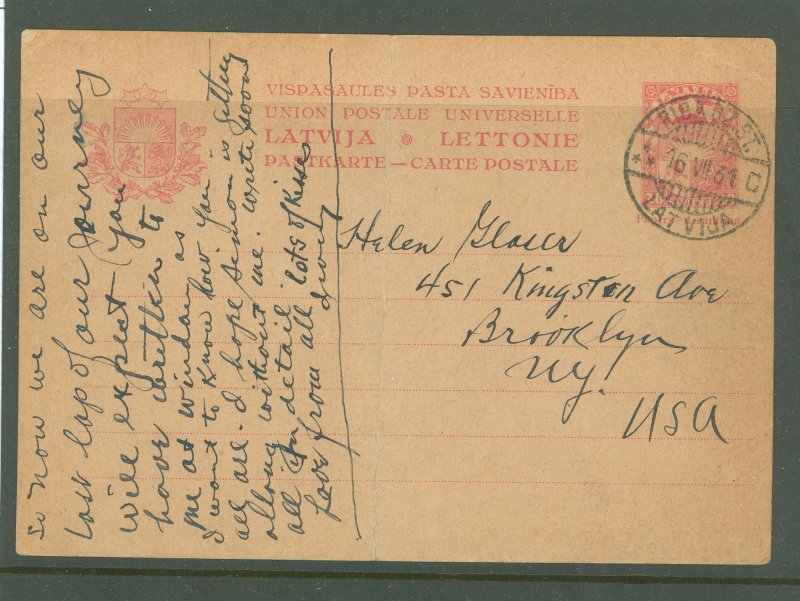 VISPASAULES PASTA SAVIENĪBA
UNION POSTALE UNIVERSELLE
LATVIJA LETTONIE
PASTKARTE — CARTE POSTALE
LATVIJA
16 VII 31
C
Helen Glaser
451 Kingston Ave
Brooklyn
NY.
USA
So now we are on our
last lap of our journey
will expect you
to have written to
me at Windau as
I want to know how you
all are. I hope Simon is getting
along without me. Write soon
all in detail. Lots of kisses
Love from all